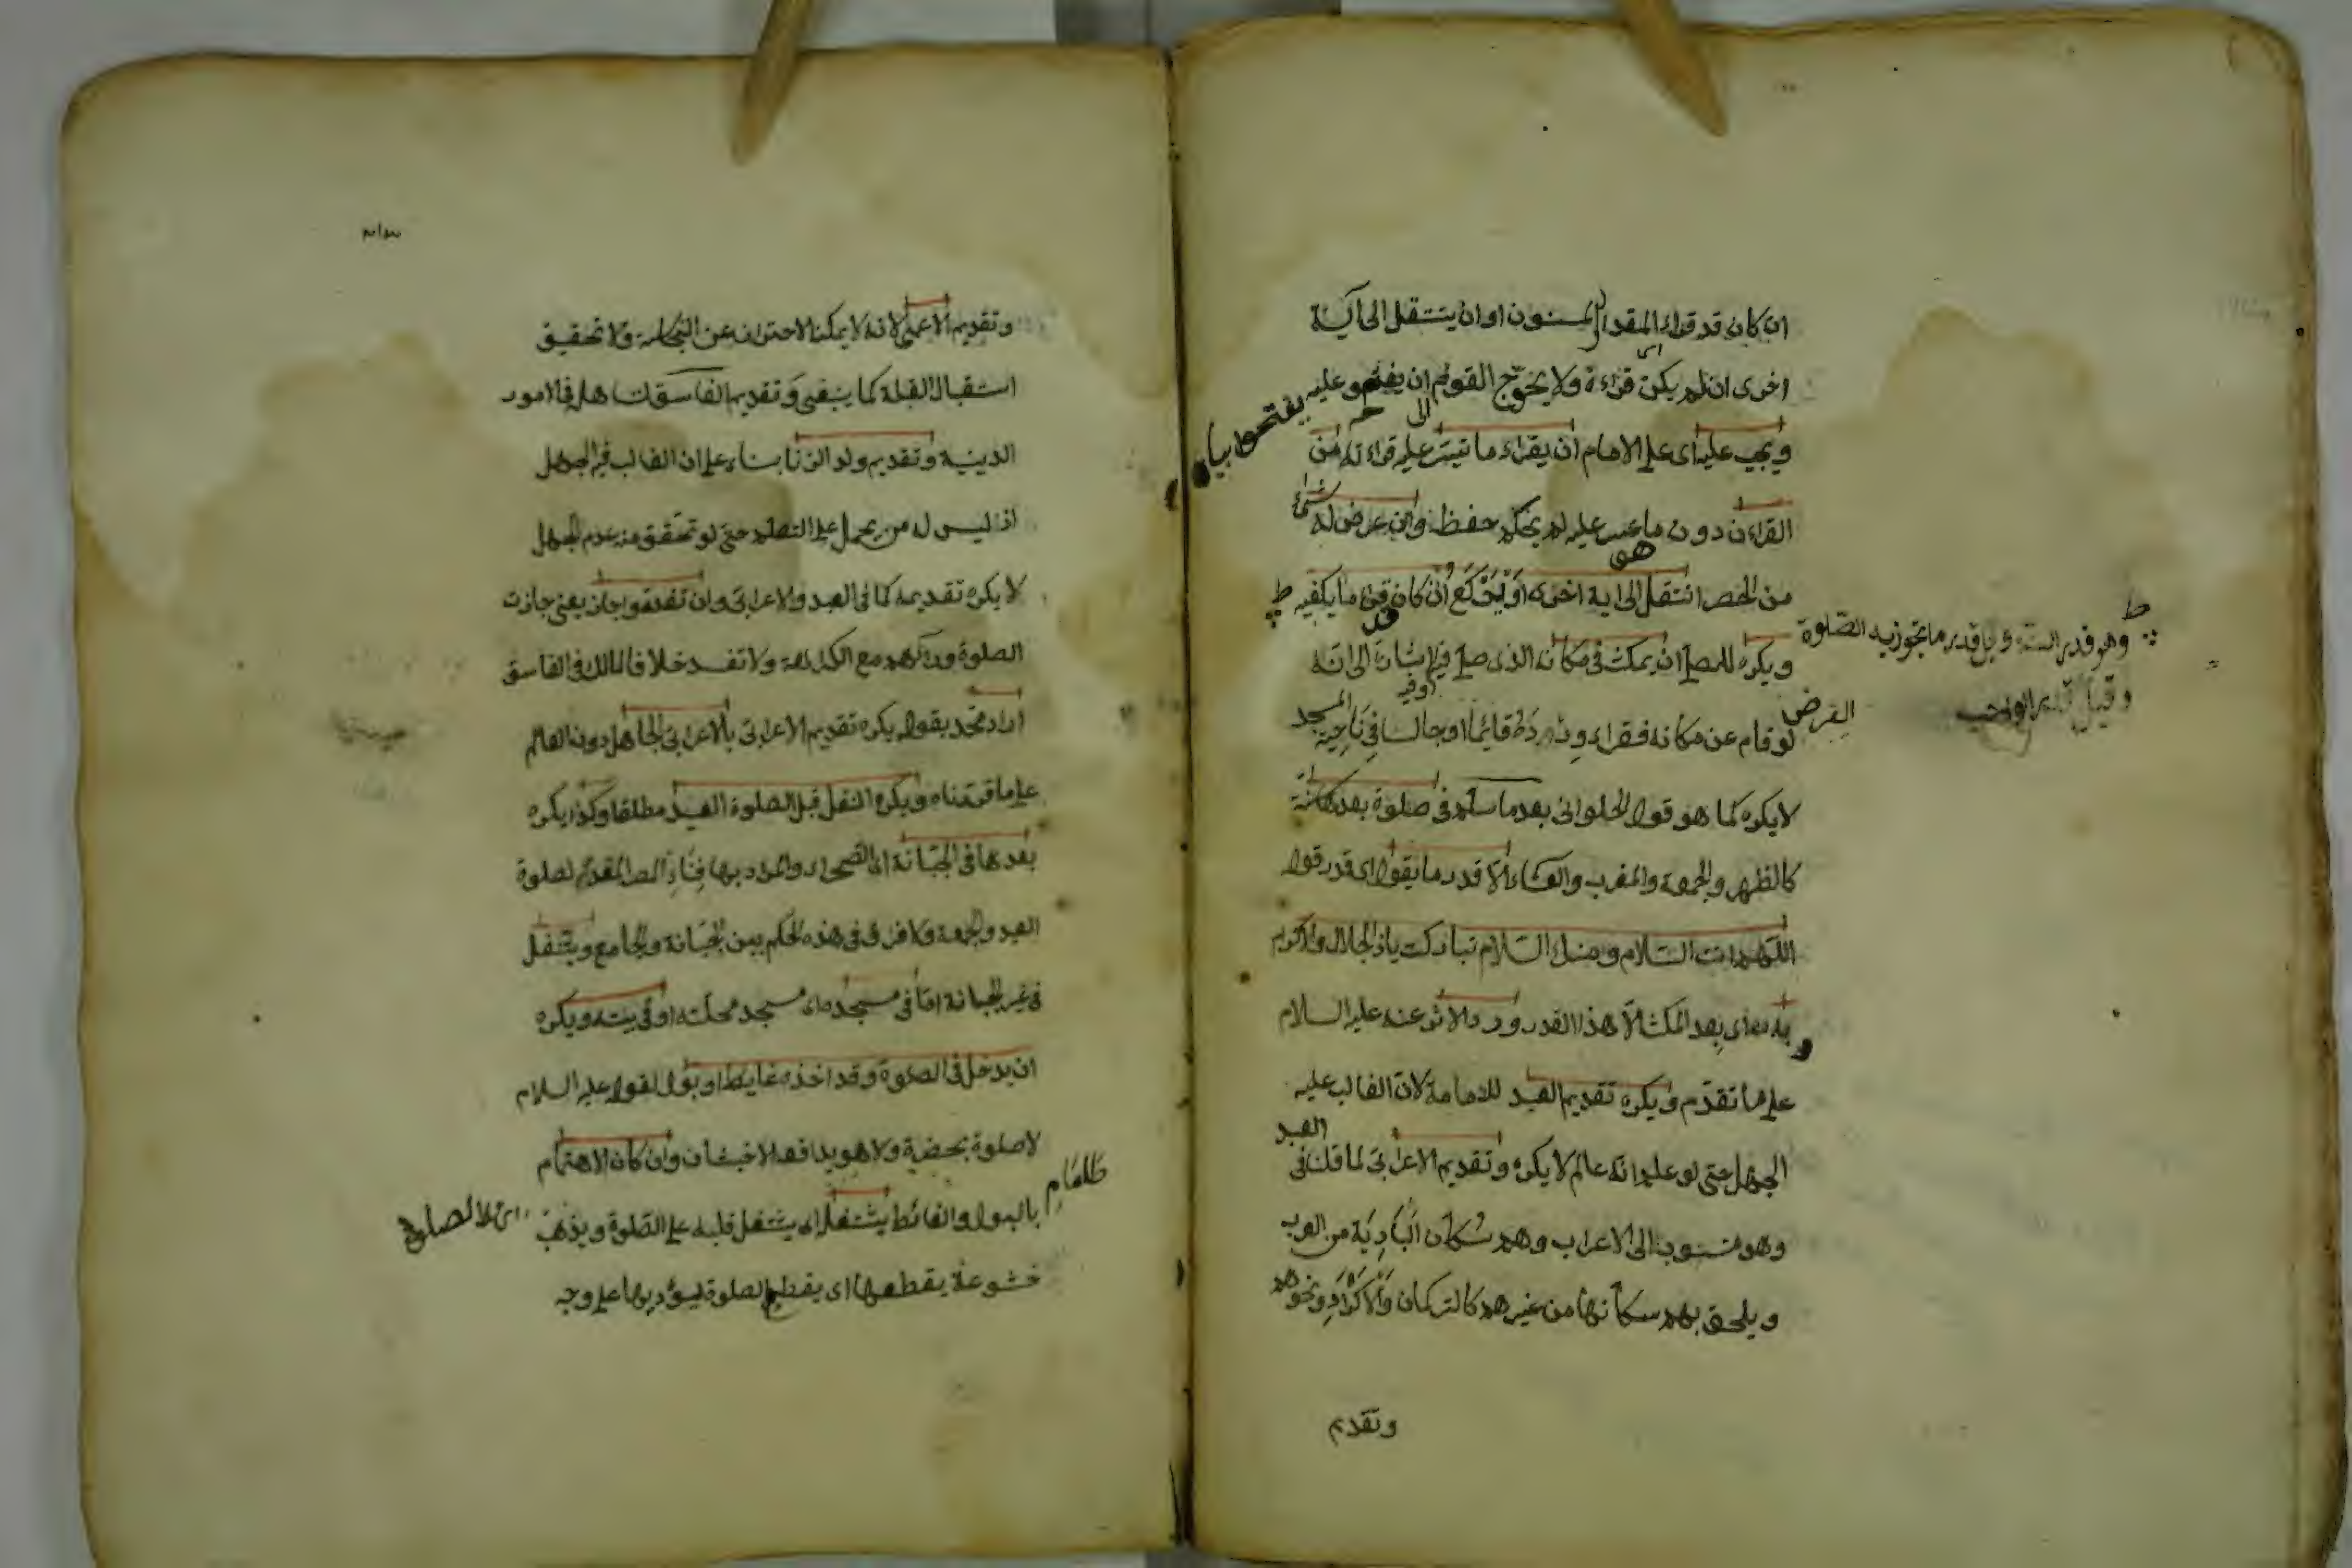 ان كان قد قراء المقدار المسنون او ان ينتقل الى آية
اخرى ان لم يكن قراءة ولا يحوج القوم ان يفتحو عليه
ويجب عليه اى على الامام ان يقراء ما تيسر عليه قراءته من
القراءن دون ما عسر عليه لم يحكم حفظه وان عرض له شئ
من الحصر انتقل الى اية اخرى او يركع ان كان قرء ما يكفيه
وهو قدر السنة وقيل قدر ما تجوز به الصلوة
الفرض
وقيل قدر الواجب
ويكره للمصلى ان يمكث فى مكانه الذى صلى فيه اشارة الى انه
لو قام عن مكانه فقراء ورده قائما او جالسا فى ناحية المسجد
لا يكره كما هو قول الحلوانى بعد ما سلم فى صلوة بعدها سنة
كالظهر والجمعة والمغرب والعشاء الا قدر ما يقول اى قدر قول
اللهم انت السلام ومنك السلام تباركت ياذ الجلال والاكرام
به اى بعد المكث الا هذا القدر ورد الاثر عنه عليه السلام
على ما تقدم ويكره تقديم العبد للامامة لان الغالب عليه
الجهل حتى لو علم انه عالم لا يكره وتقديم الاعرابى لما قلنا فى العبد
وهو منسوب الى الاعراب وهم سكان البادية من العرب
ويلحق بهم سكانها من غيرهم كالتركمان والاكراد ونحوهم
وتقديم
وتقديم الاعمى لانه لا يمكنه الاحتراز عن النجاسة ولا تحقيق
استقبال القبلة كما ينبغى وتقديم الفاسق لتساهله فى الامور
الدينية وتقديم ولد الزنا بناء على ان الغالب فيه الجهل
اذ ليس له من يحمل على التعلم حتى لو تحقق منه عدم الجهل
لا يكره تقديمه كما فى العبد والاعرابى وان تقدموا جاز يعنى جازت
الصلوة وراءهم مع الكراهة ولا تفسد خلافا لمالك فى الفاسق
اراد محمد بقوله يكره تقديم الاعرابى بالاعرابى الجاهل دون العالم
على ما قدمناه ويكره النفل قبل الصلوة العيد مطلقا وكذا يكره
بعدها فى الجبانة اى الصحراء والمراد بها فناء المصر المقدم لصلوة
العيد والجمعة ولا فرق فى هذه الحكم بين الجبانة والجامع ويتنفل
فى غير الجبانة اما فى مسجده اى مسجد محلته او فى بيته ويكره
ان يدخل فى الصلوة وقد اخذه غايط او بول لقوله عليه السلام
لا صلوة بحضرة ولا هو يدافعه الاخبثان وان كان الاهتمام
بالبول والغائط يشتغل اى يشتغل قلبه على الصلوة ويذهب
خشوعه يقطعها اى يقطع الصلوة ليؤديها على وجه